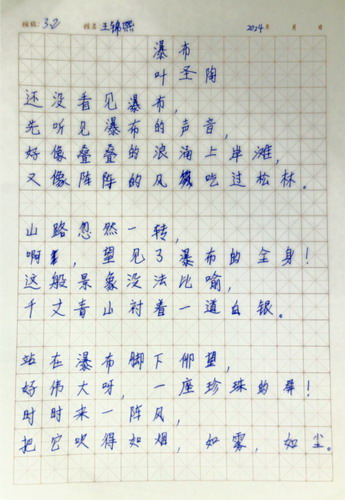 班级：3.2 姓名 王锦熙 2024年 月 日
瀑布
叶圣陶
还没看见瀑布，
先听见瀑布的声音，
好像叠叠的浪涌上岸滩，
又像阵阵的风吹过松林。
山路忽然一转，
啊！望见了瀑布的全身！
这般景象没法比喻，
千丈青山衬着一道白银。
站在瀑布脚下仰望，
好伟大呀，一座珍珠的屏！
时时来一阵风，
把它吹得如烟，如雾，如尘。